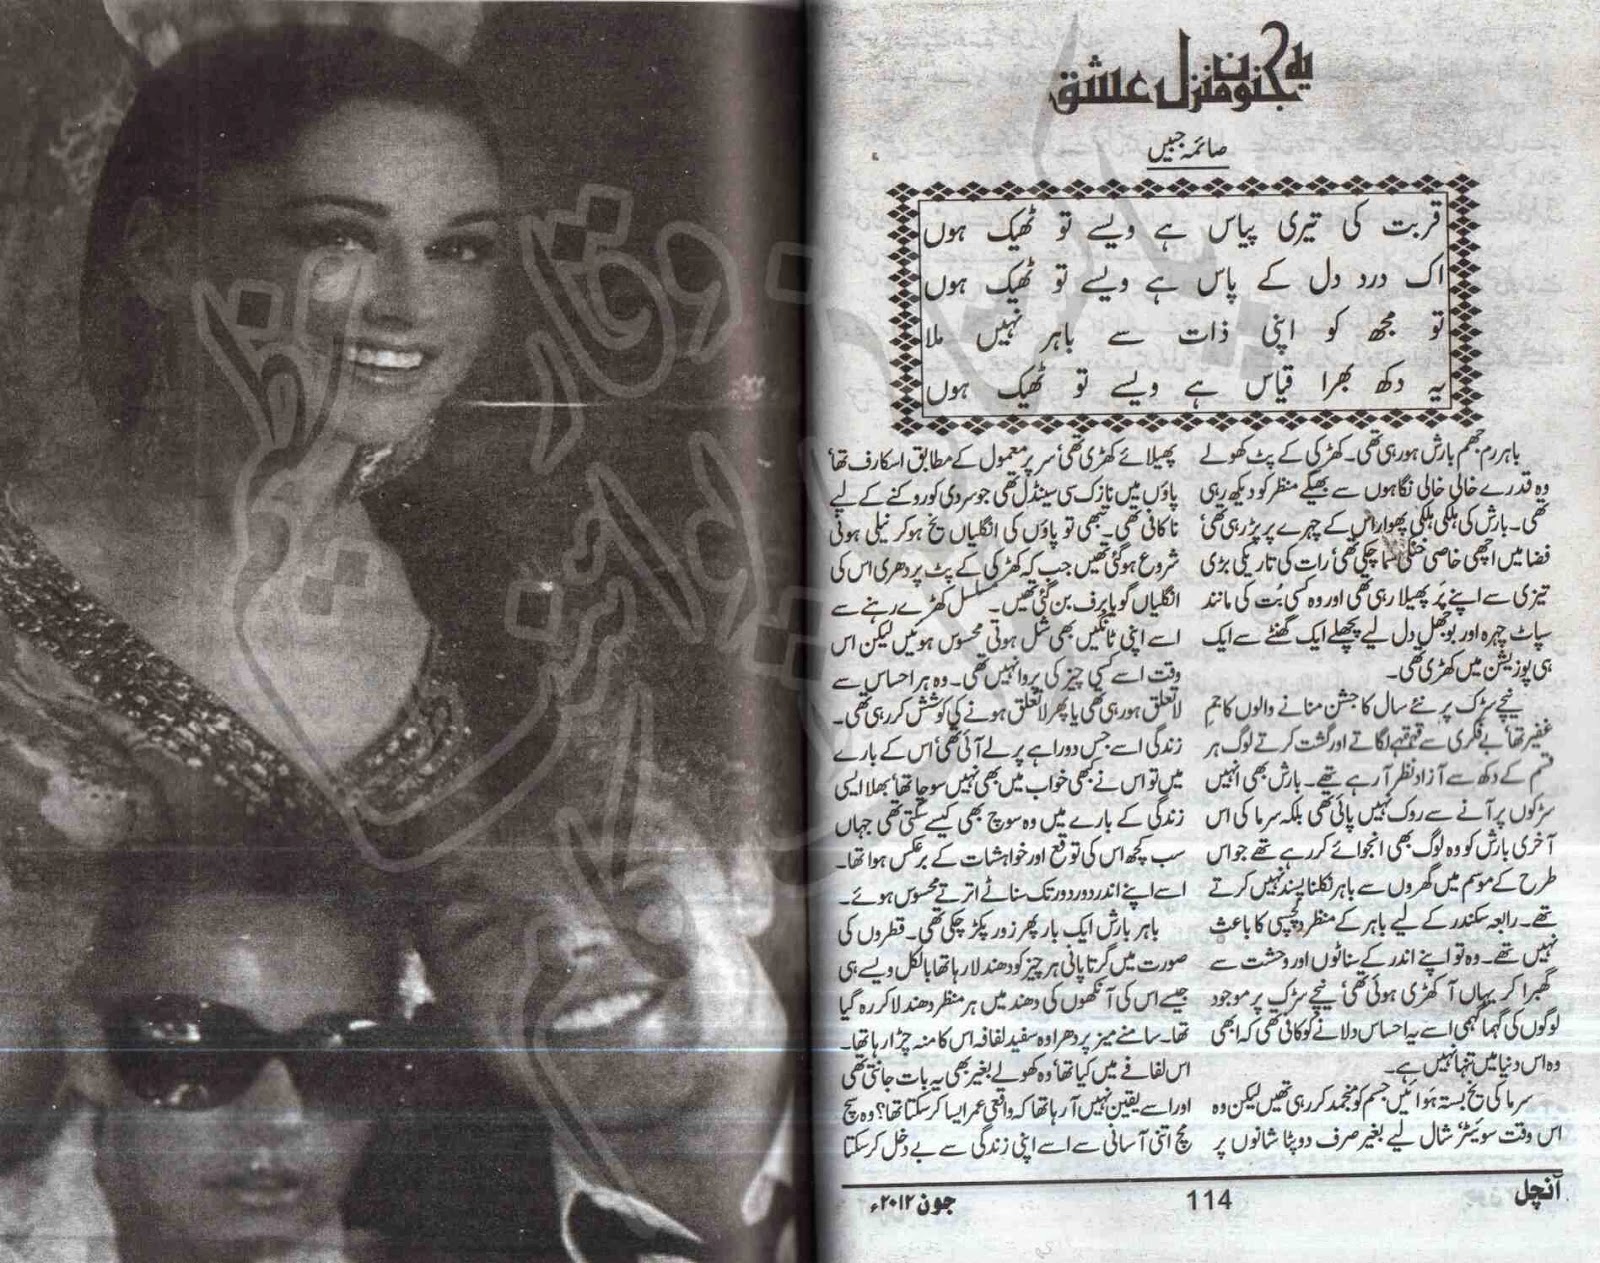 یہ جنوں منزل عشق
صائمہ جبیں
قربت کی تیری پیاس ہے ویسے تو ٹھیک ہوں
اک درد دل کے پاس ہے ویسے تو ٹھیک ہوں
تو مجھ کو اپنی ذات سے باہر نہیں ملا
یہ دکھ بھرا قیاس ہے ویسے تو ٹھیک ہوں
باہر رم جھم بارش ہو رہی تھی۔ کھڑکی کے پٹ کھولے
وہ قدرے خالی خالی نگاہوں سے بھیگے منظر کو دیکھ رہی
تھی۔ بارش کی ہلکی ہلکی پھوار اس کے چہرے پر پڑ رہی تھی،
فضا میں اچھی خاصی خنکی سما چکی تھی، رات کی تاریکی بڑی
تیزی سے اپنے پَر پھیلا رہی تھی اور وہ کسی بُت کی مانند
سپاٹ چہرہ اور بوجھل دل لیے پچھلے ایک گھنٹے سے ایک
ہی پوزیشن میں کھڑی تھی۔
نیچے سڑک پر نئے سال کا جشن منانے والوں کا جم
غفیر تھا، بے فکری سے قہقہے لگاتے اور گشت کرتے لوگ ہر
قسم کے دکھ سے آزاد نظر آ رہے تھے۔ بارش بھی انہیں
سڑکوں پر آنے سے روک نہیں پائی تھی بلکہ سرما کی اس
آخری بارش کو وہ لوگ بھی انجوائے کر رہے تھے جو اس
طرح کے موسم میں گھروں سے باہر نکلنا پسند نہیں کرتے
تھے۔ رابعہ سکندر کے لیے باہر کے منظر دلچسپی کا باعث
نہیں تھے۔ وہ تو اپنے اندر کے سناٹوں اور وحشت سے
گھبرا کر یہاں آ کھڑی ہوئی تھی، نیچے سڑک پر موجود
لوگوں کی گہما گہمی اسے یہ احساس دلانے کو کافی تھی کہ ابھی
وہ اس دنیا میں تنہا نہیں ہے۔
سرما کی یخ بستہ ہوائیں جسم کو منجمد کر رہی تھیں لیکن وہ
اس وقت سویٹر، شال لیے بغیر صرف دوپٹا شانوں پر
پھیلائے کھڑی تھی، سر پر معمول کے مطابق اسکارف تھا،
پاؤں میں نازک سی سینڈل تھی جو سردی کو روکنے کے لیے
ناکافی تھی۔ تبھی تو پاؤں کی انگلیاں یخ ہو کر نیلی ہونی
شروع ہو گئی تھیں جب کہ کھڑکی کے پٹ پر دھری اس کی
انگلیاں گویا برف بن گئی تھیں۔ مسلسل کھڑے رہنے سے
اسے اپنی ٹانگیں بھی شل ہوتی محسوس ہوئیں لیکن اس
وقت اسے کسی چیز کی پروا نہیں تھی۔ وہ ہر احساس سے
لا تعلق ہو رہی تھی یا پھر لا تعلق ہونے کی کوشش کر رہی تھی۔
زندگی اسے جس دوراہے پر لے آئی تھی، اس کے بارے
میں تو اس نے کبھی خواب میں بھی نہیں سوچا تھا، بھلا ایسی
زندگی کے بارے میں وہ سوچ بھی کیسے سکتی تھی جہاں
سب کچھ اس کی توقع اور خواہشات کے برعکس ہوا تھا۔
اسے اپنے اندر دور دور تک سناٹے اترتے محسوس ہوئے۔
باہر بارش ایک بار پھر زور پکڑ چکی تھی۔ قطروں کی
صورت میں گرتا پانی ہر چیز کو دھندلا رہا تھا بالکل ویسے ہی
جیسے اس کی آنکھوں کی دھند میں ہر منظر دھندلا کر رہ گیا
تھا۔ سامنے میز پر دھرا وہ سفید لفافہ اس کا منہ چڑا رہا تھا۔
اس لفافے میں کیا تھا، وہ کھولے بغیر بھی یہ بات جانتی تھی
اور اسے یقین نہیں آ رہا تھا کہ واقعی عمر ایسا کر سکتا تھا؟ وہ سچ
مچ اتنی آسانی سے اسے اپنی زندگی سے بے دخل کر سکتا
آنچل
114
جون ۲۰۱۲ء